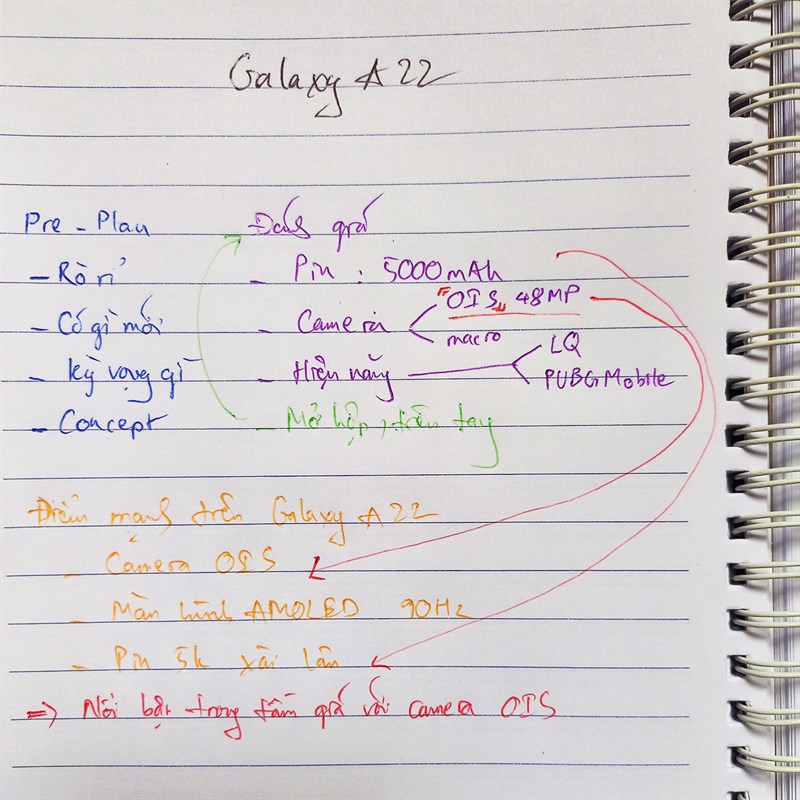 Galaxy A22
Pre - Plan
- Rò rỉ
- Có gì mới
- Kỳ vọng gì
- Concept
Đánh giá
- Pin : 5000mAh
- Camera
"OIS" 48MP
macro
- Hiệu năng
LQ
PUBG Mobile
- Mở hộp, trên tay
Điểm mạnh trên Galaxy A22
- Camera OIS
- Màn hình AMOLED 90Hz
- Pin 5k xài lâu
=> Nổi bật trong tầm giá với camera OIS